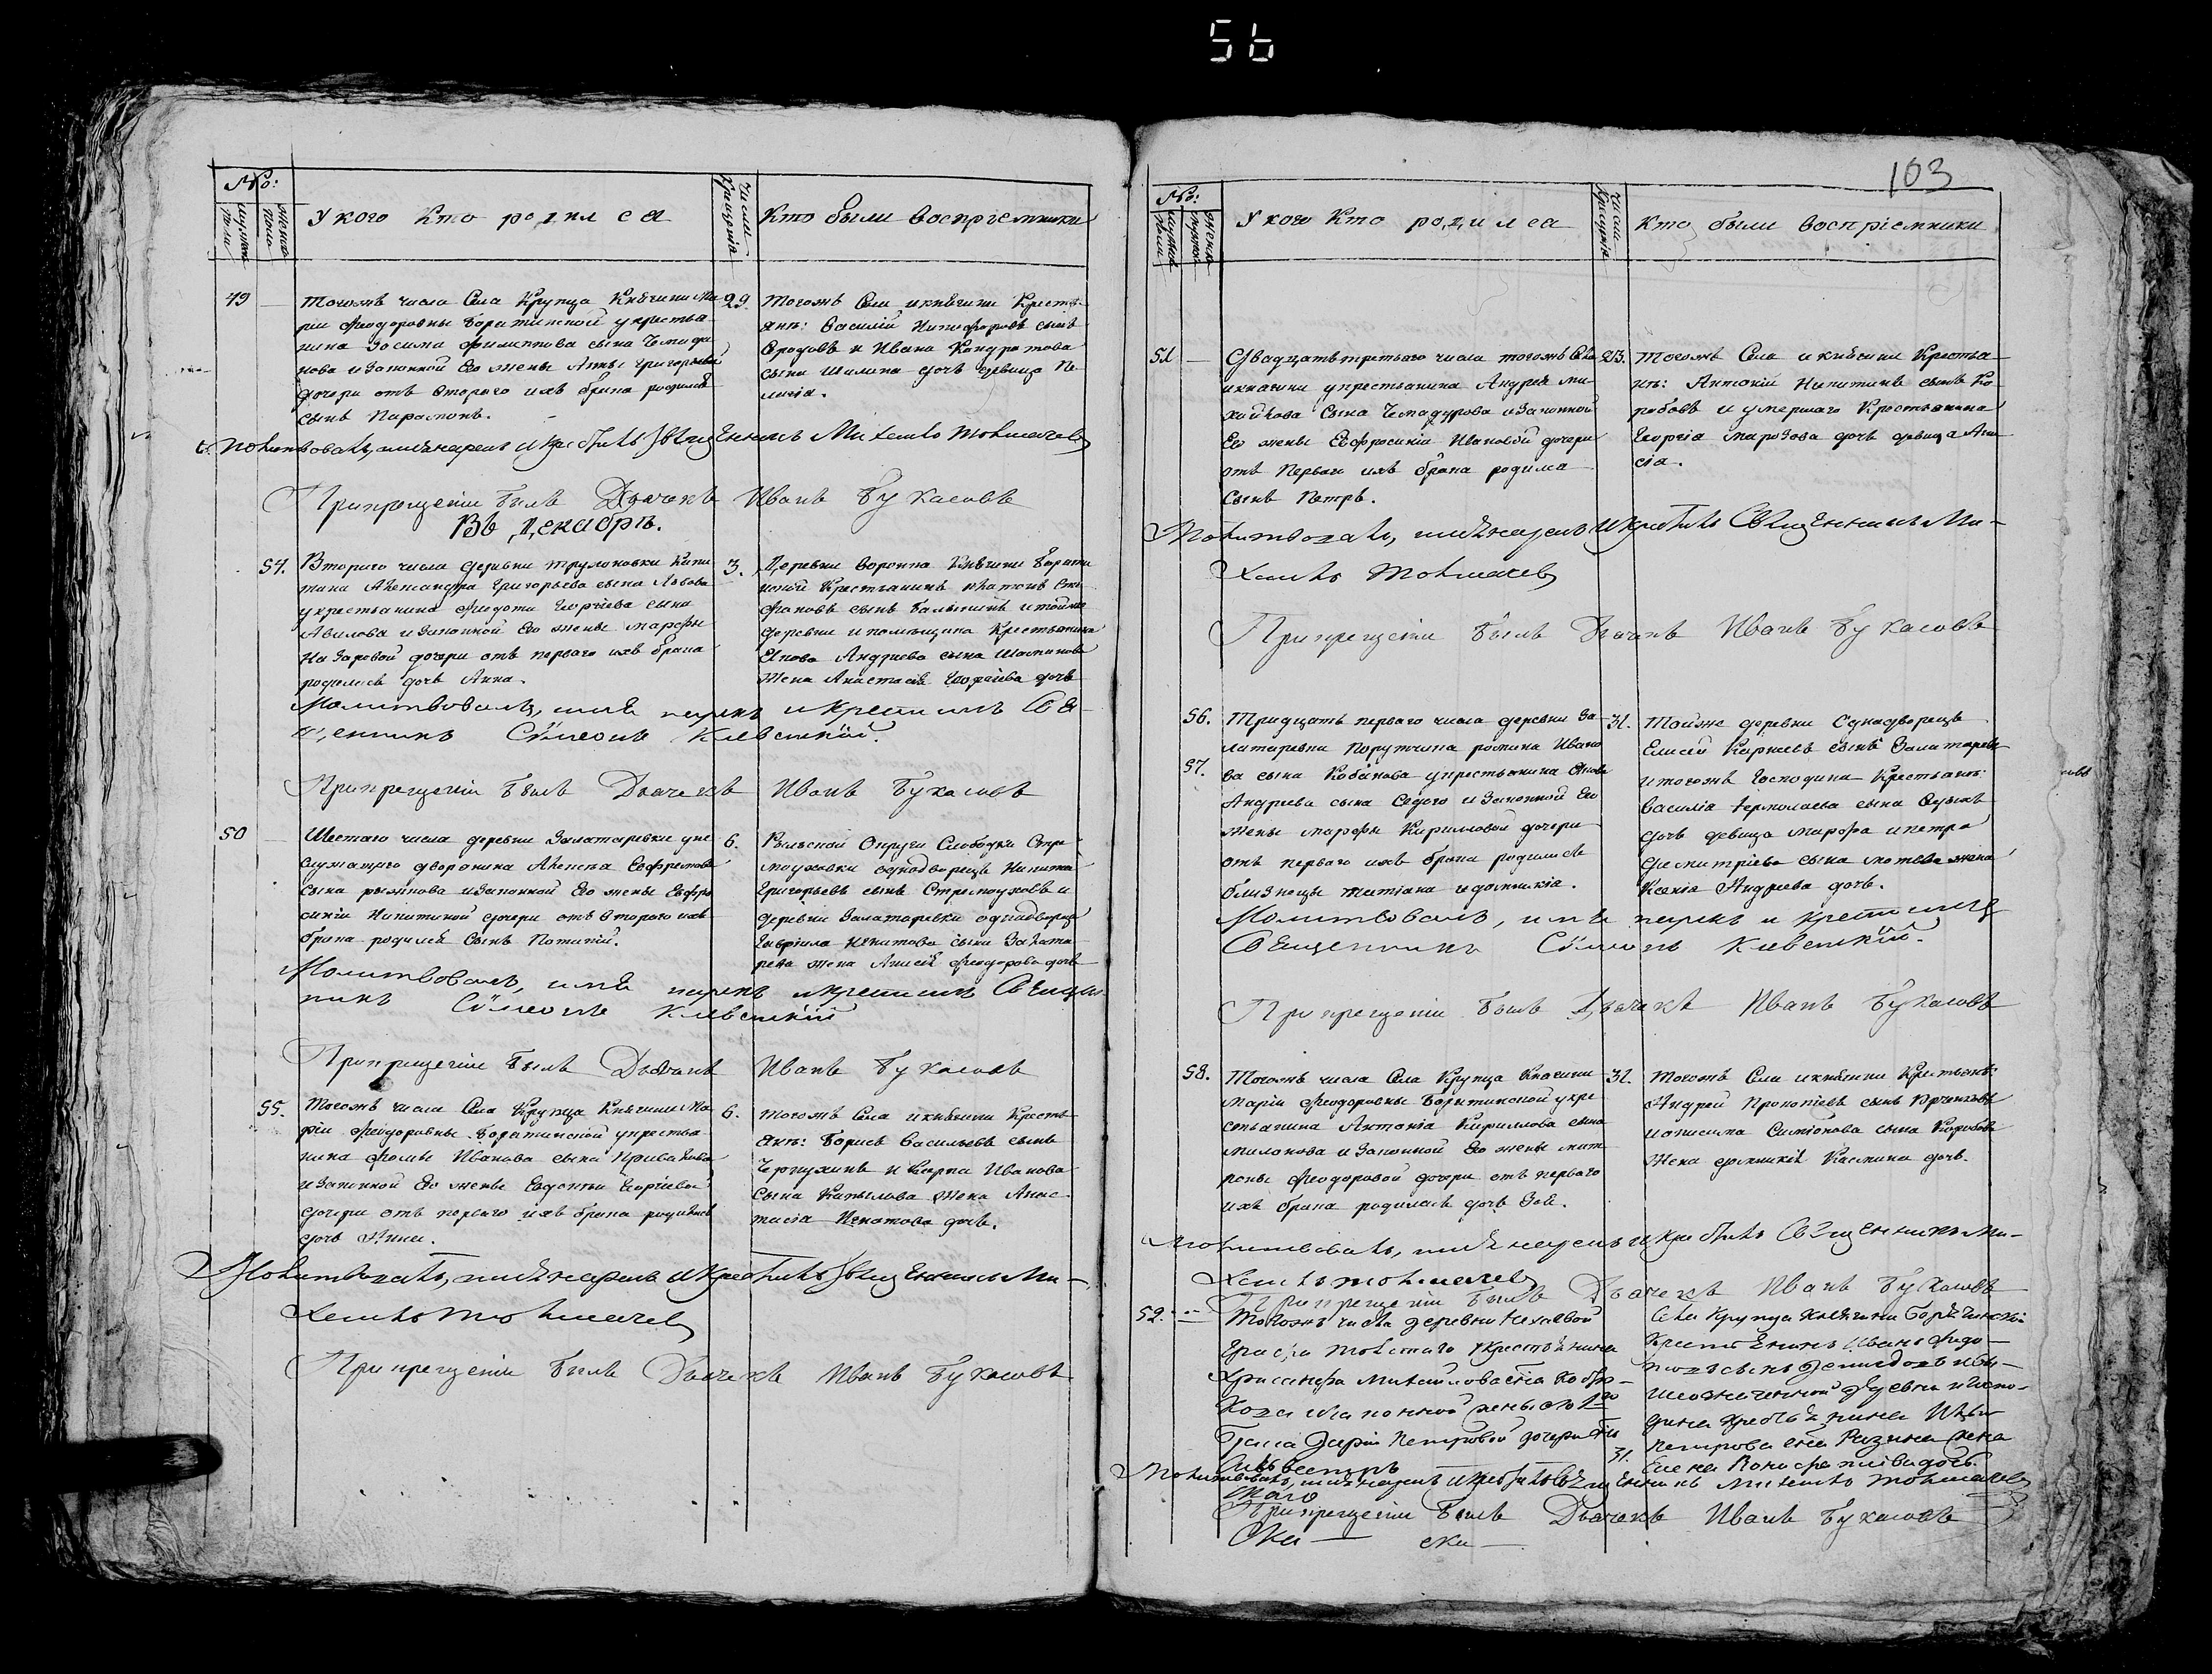 56
103
№:
мужеска пола
женска пола
У кого кто родился
числа крещенія
Кто были воспріемники
49
Тогожъ числа Села Крупца Княгини Ма-
ріи Феодоровны Барятинской у крестья-
нина Зосима Филиппова сына Демидо
нова и законной Его жены Анны Григорьевой
дочери отъ второго ихъ брака родился
сынъ Парамонъ.
29
Тогожъ Села и княгини Кресть-
янъ: Василій Никифоровъ сынъ
и Ивана Кондратова
сына Шилина дочь девица Пе-
лагія.
Молитвовалъ, имя нарекъ и крестилъ священникъ Михаилъ Толмачевъ
При крещеніи былъ Дьячекъ Иванъ Букасовъ
Въ Декабрѣ.
54.
Втораго числа деревни Капи
тана Александра Григорьева сына Львова
у крестьянина Федота Георгіева сына
Авилова и законной Его жены Марфы
Назаровой дочери отъ перваго ихъ брака
родилась дочь Анна.
3.
Деревни Воронка Княгини Барятин
ской Крестьянинъ Платонъ Сте
фановъ сынъ и тойже
деревни и помещика Крестьянина
Якова Андреева сына
жена Анастасія Георгіева дочь
Молитвовалъ, имя нарекъ и крестилъ Свя-
щенникъ Сѵмеонъ Кіевскій.
При крещеніи былъ Дьячекъ Иванъ Букасовъ
50
Шестаго числа деревни Залатаревки у не
служащаго дворянина Алексея Евфремова
сына Рыжкова и законной Его жены Евфро
синіи Никитиной дочери отъ втораго ихъ
брака родился сынъ Потапій.
6.
Рыльской Округи Слободки Стре
моуховки однодворецъ Никита
Григорьевъ сынъ Стремоуховъ и
деревни Залатаревки однодворца
Гавріила Игнатова сына Залата
рева жена Анисія Феодорова дочь
Молитвовалъ, имя нарекъ и крестилъ Священ
никъ Сѵмеонъ Кіевскій
При крещеніи былъ Дьячекъ Иванъ Букасовъ
55.
Тогожъ числа Села Крупца Княгини Ма
ріи Феодоровны Барятинской у крестья
нина Фомы Иванова сына
и законной Его жены Евдокіи Георгіевой
дочери отъ перваго ихъ брака родилась
дочь Анна.
6.
Тогожъ Села и княгини Кресть
янъ: Борисъ Васильевъ сынъ
и Карпа Иванова
сына Капылова жена Анас
тасія Игнатова дочь.
Молитвовалъ, имя нарекъ и крестилъ священникъ Ми-
хаилъ Толмачевъ
При крещеніи былъ Дьячекъ Иванъ Букасовъ
№:
мужеска пола
женска пола
У кого кто родился
числа крещенія
Кто были воспріемники
51
Двадцать третьяго числа тогожъ Села
и княгини у крестьянина Андрея Ми-
хайлова сына и законной
Его жены Евфросиніи Ивановой дочери
отъ перваго ихъ брака родился
сынъ Петръ.
23.
Тогожъ Села и княгини Крестья
нъ: Антоній Никитинъ сынъ Ко
робовъ и умершаго Крестьянина
Георгія Марозова дочь девица Ани
сія.
Молитвовалъ, имя нарекъ и крестилъ Священникъ Ми-
хаилъ Толмачевъ
При крещеніи былъ Дьячекъ Иванъ Букасовъ
56.
57.
Тридцать перваго числа деревни За
латаревки Поручика Романа Ивано
ва сына Кобякова у крестьянина Якова
Андреева сына Седого и законной Его
жены Марфы Кириловой дочери
отъ перваго ихъ брака родились
близнецы Татіана и Домникія.
31.
Тойже деревни Однодворецъ
Елисей Карпеевъ сынъ Залатаревъ
и тогожъ Господина Крестьянъ:
Василія Ермолаева сына
дочь девица Марфа и Петра
Димитріева сына жена
Ксенія Андреева дочь.
Молитвовалъ, имя нарекъ и крестилъ
Священникъ Сѵмеонъ Кіевскій.
При крещеніи былъ Дьячекъ Иванъ Букасовъ
58.
Тогожъ числа Села Крупца Княгини
Маріи Феодоровны Барятинской у кре
стьянина Антонія Кирилова сына
Милонова и законной Его жены Мат
роны Феодоровой дочери отъ перваго
ихъ брака родилась дочь Зоя.
31.
Тогожъ Села и княгини Крестьянъ:
Андрей Прокопіевъ сынъ
и Онисима Симіонова сына Коробова
жена Домникія Касмина дочь.
Молитвовалъ, имя нарекъ и крестилъ Священникъ Ми-
хаилъ Толмачевъ
При крещеніи былъ Дьячекъ Иванъ Букасовъ
52.
Тогожъ числа деревни Нехаевой
Графа Толстаго у крестьянина
Хрисанфа Михайлова сына
и законной жены его 1го
брака Даріи Петровой дочери сынъ
Сильвестръ
Села Крупца княгини Борятинской
Крестьянинъ Иванъ Федо-
товъ сынъ Демидовъ и вы-
шеозначенной деревни и Госпо-
дина крестьянина
Петрова сына Разина жена
31.
Елена дочь.
Молитвовалъ, имя нарекъ и крестилъ священникъ Михаилъ Толмачевъ
При крещеніи былъ Дьячекъ Иванъ Букасовъ